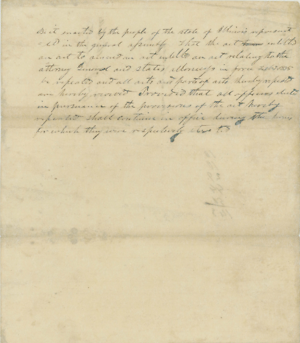 Be it enacted by the people of the state of Illinois represent
ed in the general assembly That the act entitled
an act to amend an act entitled an act relating to the
attorney General and states Attorneys in force
be repealed and all acts and parts of acts hereby repealed
are hereby revived Provided that all officers elected
in pursuance of the provisions of the act hereby
repealed shall continue in office during the time
for which they were respectively